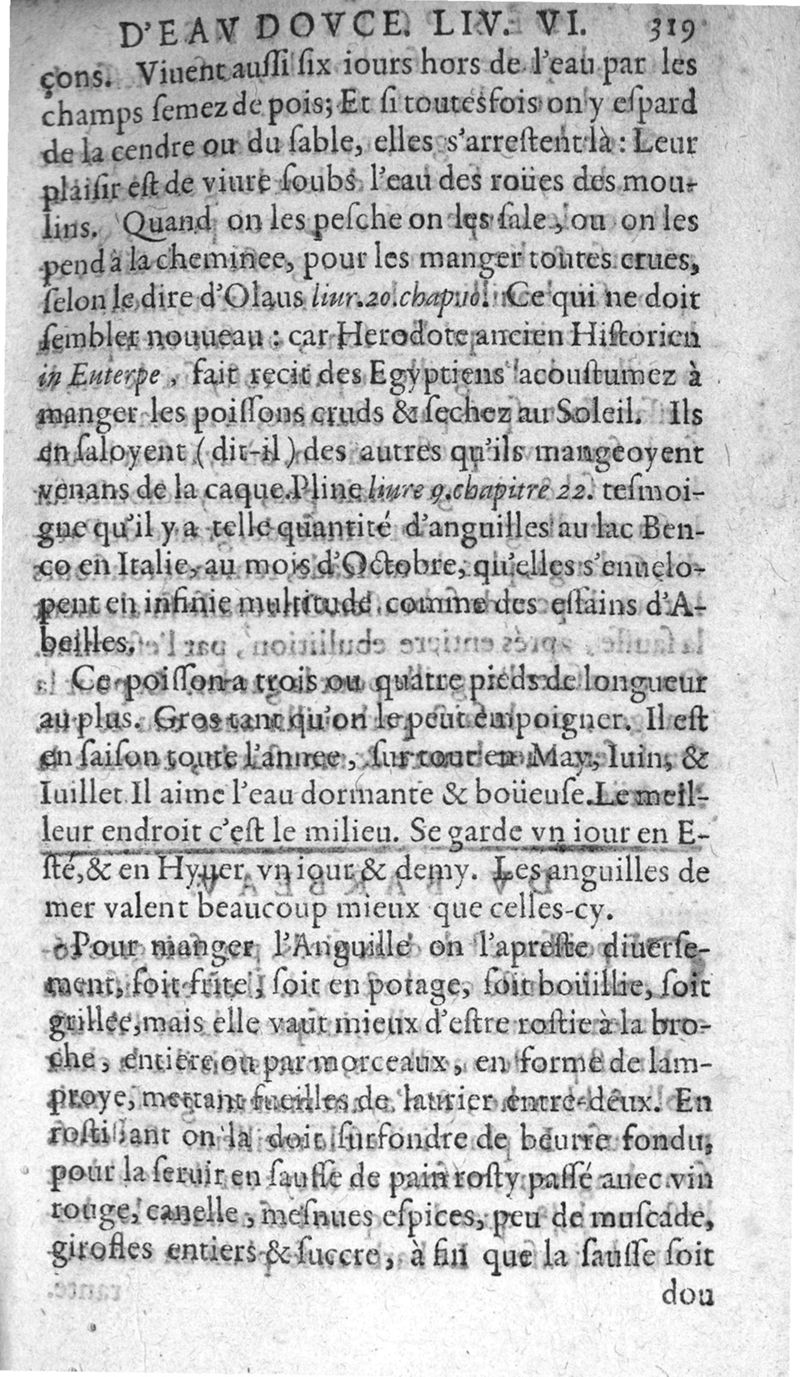 D'EAV DOVCE. LIV. VI. 319
çons. Viuent aussi six iours hors de l'eau par les
champs semez de pois; Et si toutesfois on y espard
de la cendre ou du sable, elles s'arrestent là : Leur
plaisir est de viure soubs l'eau des roües des mou-
lins. Quand on les pesche on les sale, ou on les
pend à la cheminee, pour les manger toutes crues,
selon le dire d'Olaus liur.20.chap. Ce qui ne doit
sembler nouueau : car Herodote ancien Historien
in Euterpe, fait recit des Egyptiens acoustumez à
manger les poissons cruds & sechez au Soleil. Ils
en saloyent (dit-il) des autres qu'ils mangeoyent
venans de la caque. Pline liure 9.chapitre 22. tesmoi-
gue qu'il y a telle quantité d'anguilles au lac Ben-
co en Italie, au mois d'Octobre, qu'elles s'enuelo-
pent en infinie multitude comme des essains d'A-
beilles.
Ce poisson a trois ou quatre pieds de longueur
au plus. Gros tant qu'on le peut empoigner. Il est
en saison toute l'annee, sur tout en May, Iuin, &
Iuillet Il aime l'eau dormante & boüeuse. Le meil-
leur endroit c'est le milieu. Se garde vn iour en E-
sté, & en Hyuer vn iour & demy. Les anguilles de
mer valent beaucoup mieux que celles-cy.
Pour manger l'Anguille on l'apreste diuerse-
ment, soit frite, soit en potage, soit boüillie, soit
grillée, mais elle vaut mieux d'estre rostie à la bro-
che, entiere ou par morceaux, en forme de lam-
proye, mettant fueilles de laurier entre-deux. En
rostissant on la doit surfondre de beurre fondu,
pour la seruir en sausse de pain rosty passé auec vin
rouge, canelle, mesnues espices, peu de muscade,
girofles entiers & succre, à fin que la sausse soit
dou